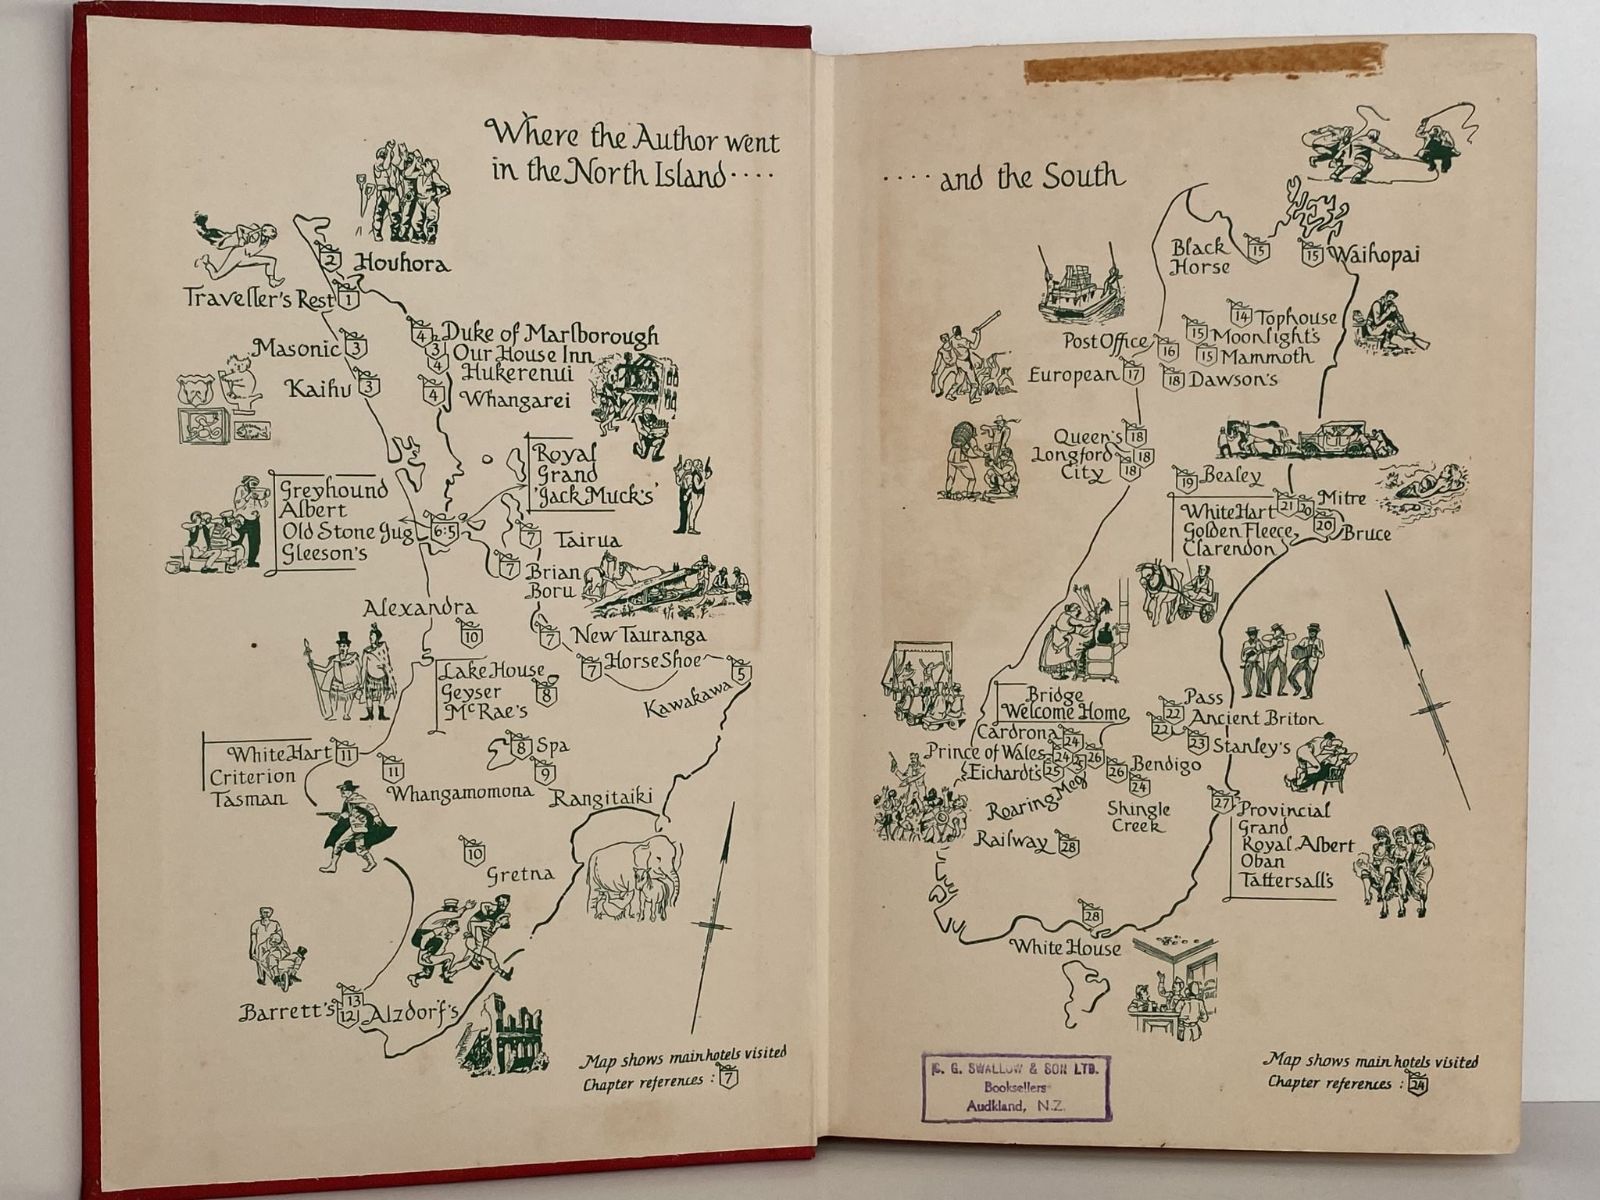 Where the Author went
in the North Island ....
2 Houhora
Traveller's Rest 1
Masonic 3
4 Duke of Marlborough
3 Our House Inn
4 Hukerenui
Kaihu 3
4 Whangarei
Royal
Grand
'Jack Muck's'
Greyhound
Albert
Old Stone Jug
Gleeson's
6:5
7 Tairua
7 Brian
Boru
Alexandra
10
7 New Tauranga
7 Horse Shoe
5
Kawakawa
Lake House
Geyser
McRae's
8
White Hart 11
Criterion
Tasman
11
Whangamomona
8 Spa
9
Rangitaiki
10
Gretna
Barrett's 13
12 Alzdorf's
Map shows main hotels visited
Chapter references : 7
.... and the South
Black
Horse 15
15 Waihopai
14 Tophouse
15 Moonlight's
15 Mammoth
Post Office 16
European 17
18 Dawson's
Queen's 18
Longford 18
City 18
19 Bealey
White Hart 21 20
Golden Fleece
Clarendon
Mitre
20 Bruce
Bridge
Welcome Home
Pass
22
Ancient Briton
22
Cardrona 24
Prince of Wales 24
Eichardt's 25
26
23 Stanley's
26 Bendigo
24
Roaring Meg
Shingle
Creek
Railway 28
27 Provincial
Grand
Royal Albert
Oban
Tattersall's
28
White House
Map shows main hotels visited
Chapter references : 24
C. G. SWALLOW & SON LTD.
Booksellers
Audkland, N.Z.